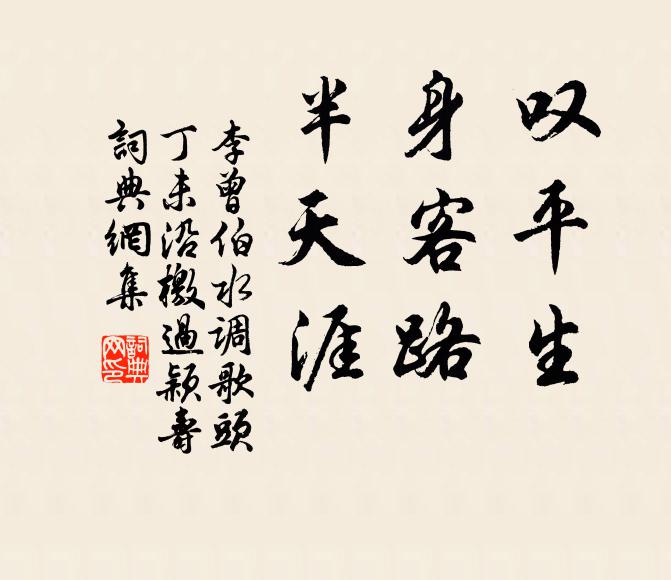 叹平生
身客路
半天涯
李曾伯水调歌頭
丁未沿檄過颍壽
詞典網集
詞典網印